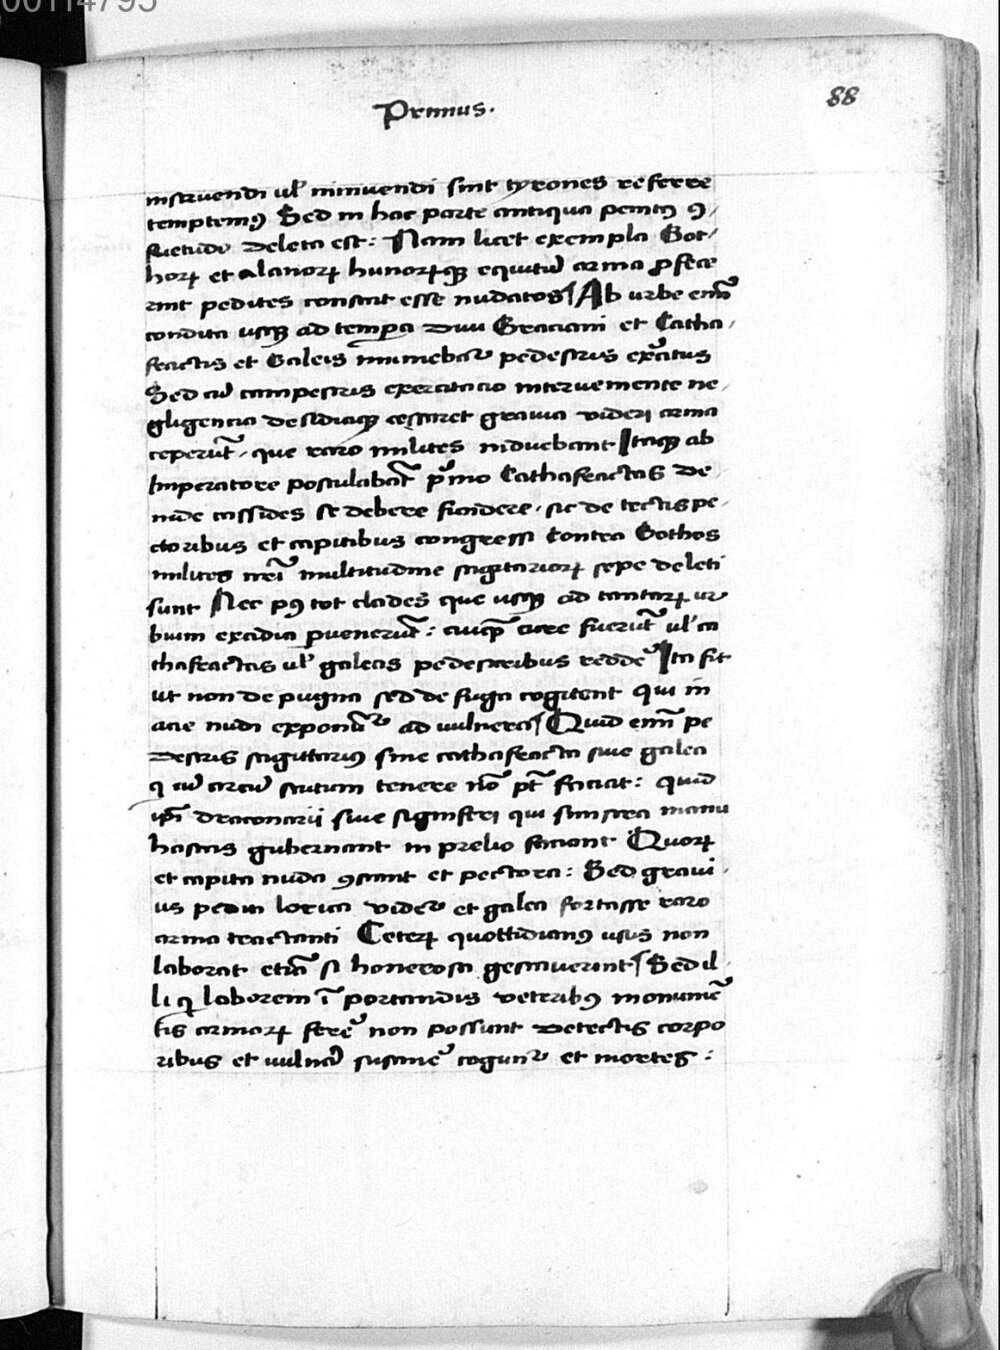 00114795
Primus.
88
instruendi ul' minuendi sint tyrones referre
temptemꝰ Sed in hac parte antiqua penitꝰ ꝯ/
suetudo deleta est: Nam licet exempla Got/
horꝝ et alanorꝝ hunorꝝqꝫ equitū arma ꝓfece
rint pedites constat esse nudatos Ab urbe enī
condita usqꝫ ad tempꝰa diui Graciani et Catha/
fractis et Galeis muniebat᷑ pedestris ex̄citus
Sed cū campestris exercitacio interueniente ne/
gligencia desidiaqꝫ cessaret grauia videri arma
ceperūt, que raro milites induebant Itaqꝫ ab
Imperatore postulabāt p̄mo Cathafractas de/
inde cassides se debere fundere, sic detectis pe/
ctoribus et capitibus congressi contra Gothos
milites nr̄i multitudine sagitariorꝝ sepe deleti
sunt Nec pꝰ tot clades que usqꝫ ad tantarꝝ ur
bium excidia ꝑuenerūt: cuiqꝫ cure fuerūt ul' ca
thafractas ul' galeas pedestribus redde᷑ Ita fit
ut non de pugna sed de fuga cogitent qui in
acie nudi exponūt᷑ ad uulnera Quid enī pe
destris sagittarius sine cathafracta sine galea
qͥ cū arcu scutum tenere nō pt̄ faciat: quid
ip̄i draconarii siue signiferi qui sinistra manu
hastas gubernant in prelio faciant Quorꝝ
et capita nuda ꝯstant et pectora: Sed graui/
us pediti lorica videt᷑ et galea fortasse raro
arma tractanti Ceterꝝ quottidianꝰ usus non
laborat etiā si honerosa gestauerint Sed il/
li qͥ laborem ī portandis veteribꝰ monumē
tis armorꝝ ferre᷑ non possunt detectis corpo
ribus et uulnera sustine᷑ cogunt᷑ et mortes: